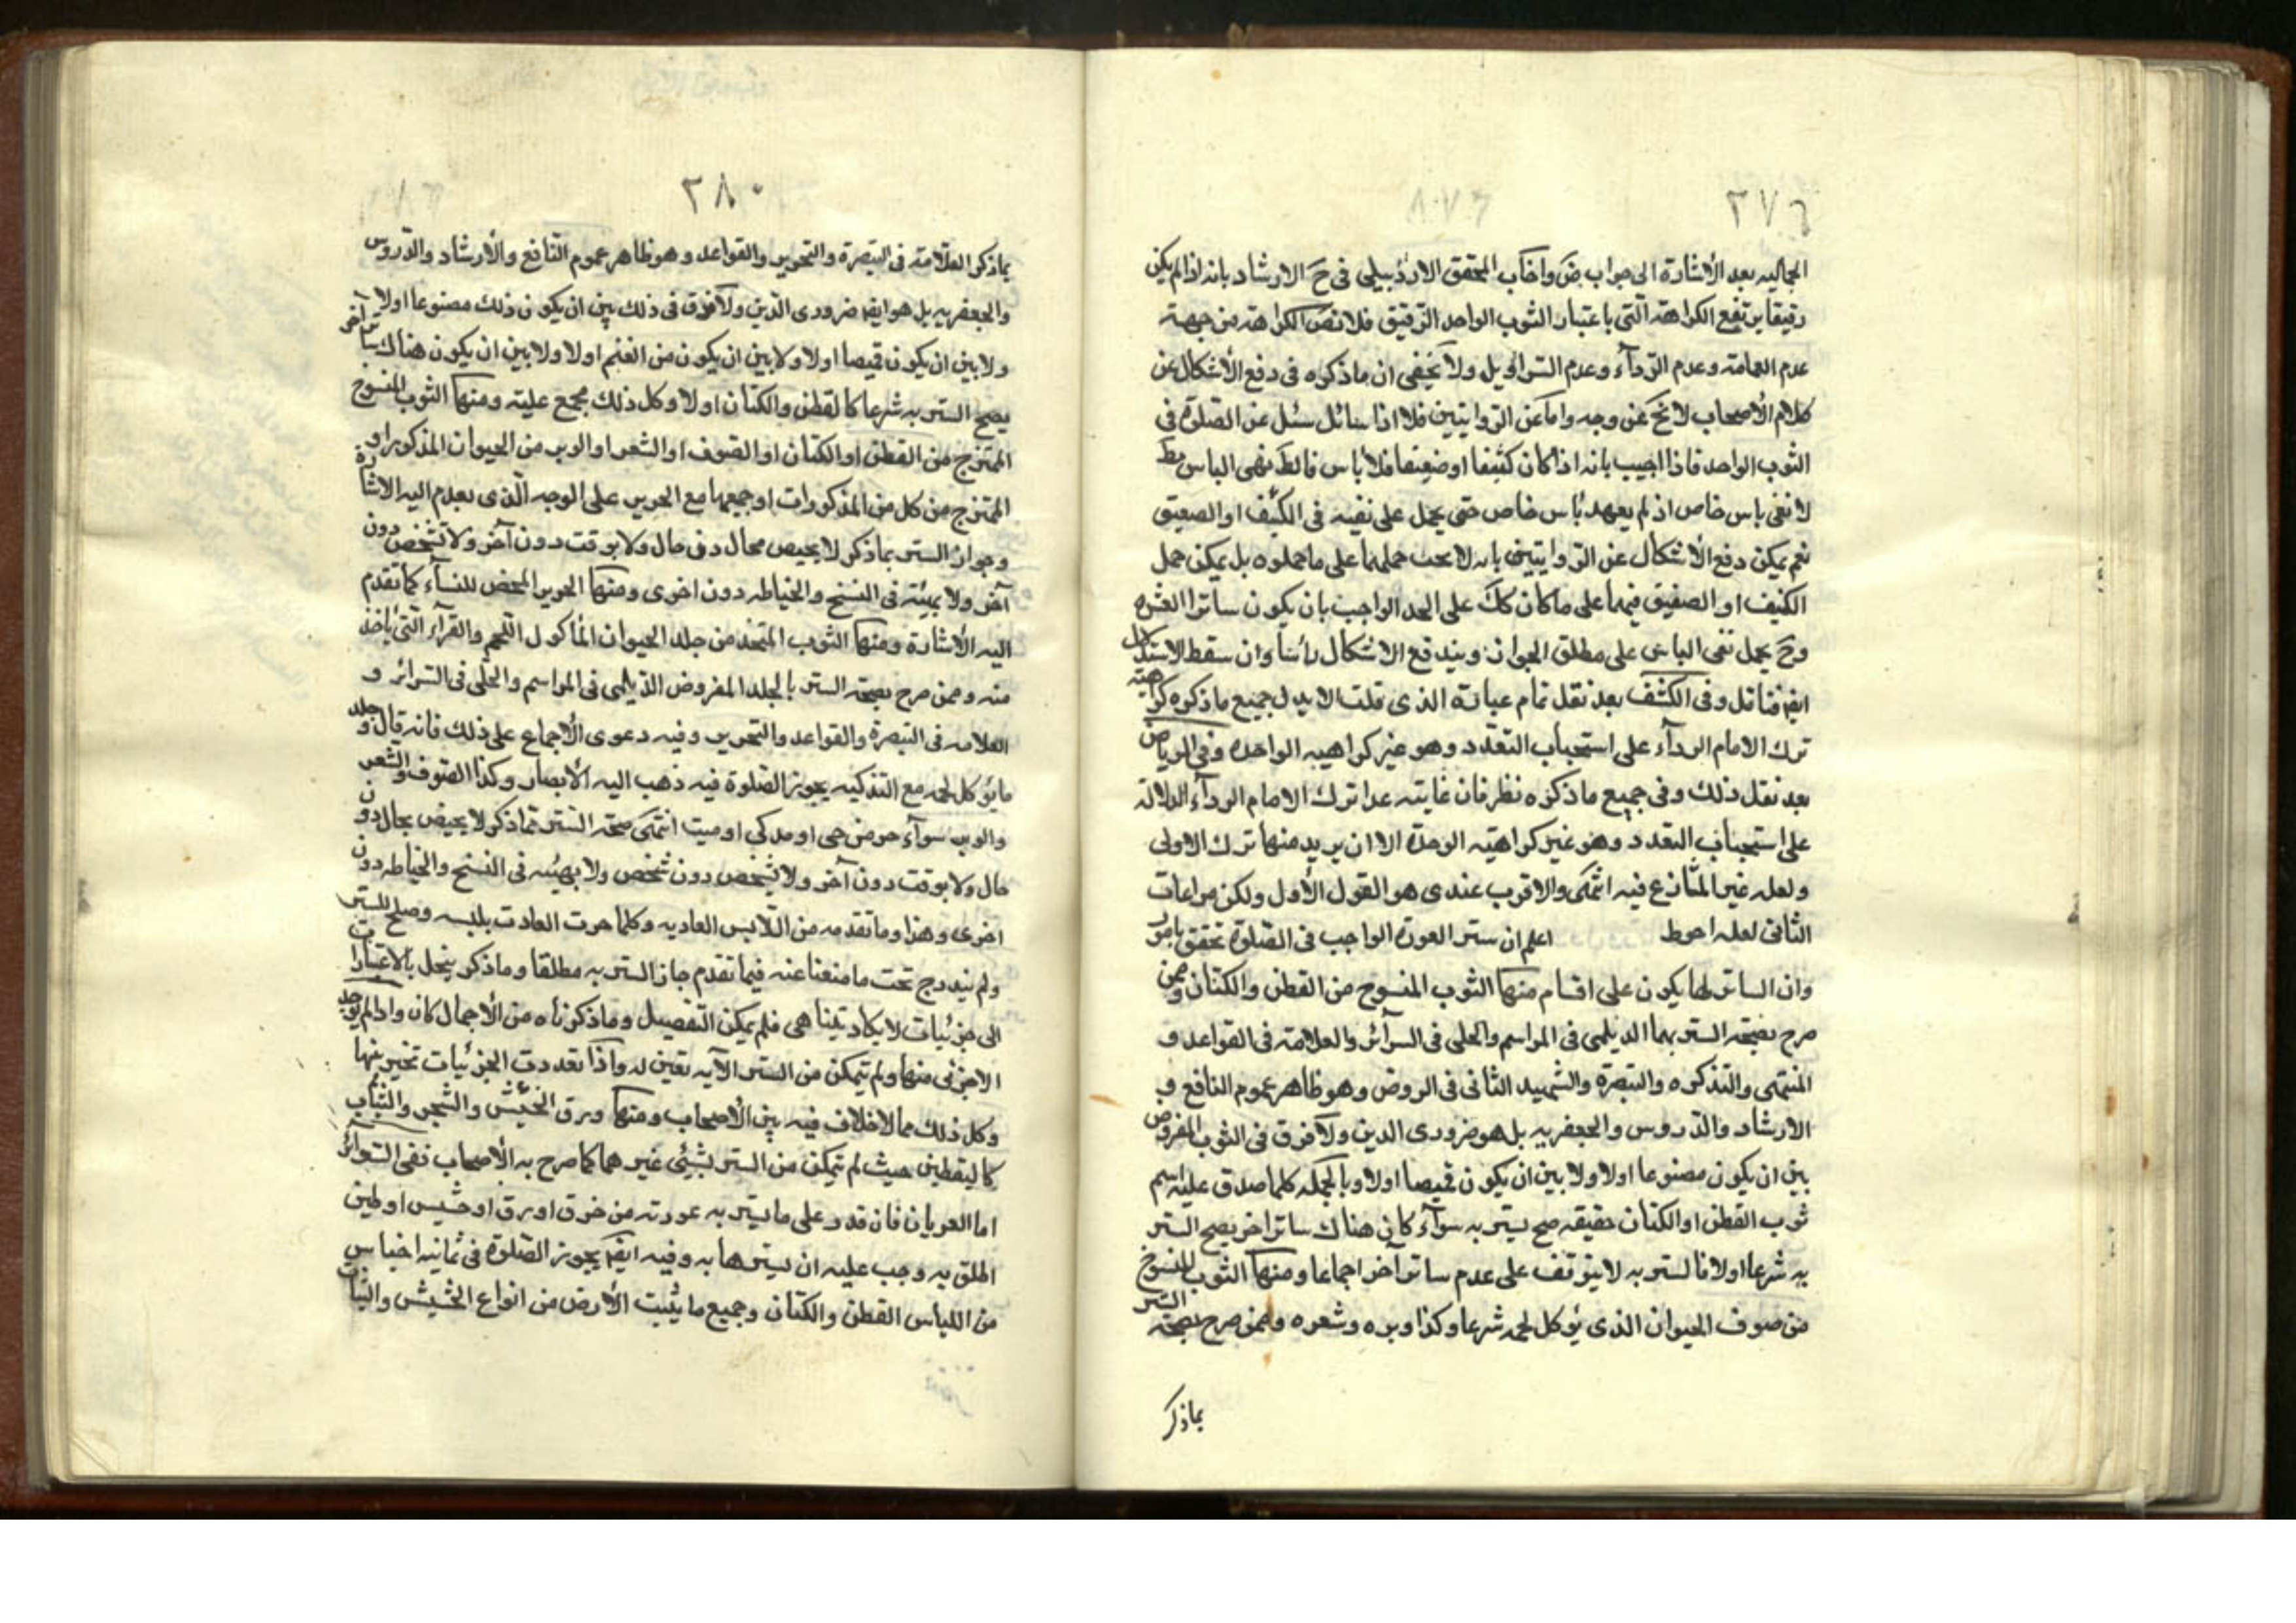 ٢٧٦
الجماليه بعد الأشارة الى جواب ض واجاب المحقق الاردبيلى فى ح الارشاد بانه اذا لم يكن
رقيقا يرتفع الكراهة التى باعتبار الثوب الواحد الرقيق فلا نص الكراهة من جهة
عدم العمامة وعدم الردآء وعدم السراويل ولا يخفى ان ما ذكره فى دفع الأشكال عن
كلام الأصحاب لا يخ عن وجه واما عن الروايتين فلا اذا سائل سئل عن الصلوة فى
الثوب الواحد فاذا اجيب بانه اذا كان كثيفا او ضيقا فلا باس فالظ نفى الباس مط
لا نفى باس خاص اذ لم يعهد بأس خاص حتى يحمل على نفيه فى الكثيف او الصفيق
نعم يمكن دفع الأشكال عن الروايتين بانه لا يجب حملهما على ما حملوه بل يمكن حمل
الكثيف او الصفيق فيهما على ما كان كك على الحد الواجب بان يكون ساترا للبشره
وح يحمل نفى الباس على مطلق الجواز ويندفع الاشكال رأسا وان سقط الاستدلال
ايض فتامل وفى الكشف بعد نقل تمام عبارة الذى قلت لا يدل جميع ما ذكره كراهية
ترك الامام الردآء على استحباب التعدد وهو غير كراهيه الواحده وفى الرياض
بعد نقل ذلك وفى جميع ما ذكره نظر فان غايته عدا ترك الامام الردآء الدلالة
على استحباب التعدد وهو غير كراهيته الوحدة الا ان يريد منها ترك الاولى
ولعله غير المتنازع فيه انتهى والاقرب عندى هو القول الأول ولكن مراعات
الثانى لعله احوط اعلم ان ستر العورة الواجب فى الصلوة تحقق بامور
وان الساتر لها يكون على اقسام منها الثوب المنسوج من القطن والكتان وممن
صرح بصحة الستر بهما الديلمى فى المراسم والحلى فى السرآئر والعلامة فى القواعد و
المنتهى والتذكره والتبصرة والشهيد الثانى فى الروض وهو ظاهر عموم النافع و
الارشاد والدروس والجعفريه بل هو ضرورى الدين ولا فرق فى الثوب المفروض
بين ان يكون مصنوعا اولا ولا بين ان يكون قميصا اولا وبالجمله كلما صدق عليه اسم
ثوب القطن او الكتان حقيقه صح يستر به سوآء كان هناك ساترا خر يصح الستر
به شرعا اولا فالستر به لا يتوقف على عدم ساتر آخر اجماعا ومنها الثوب المنسوج
من صوف الحيوان الذى يؤكل لحمه شرعا وكذا وبره وشعره وممن صرح بصحة الستر
بماذكر
٢٨٠
بماذكر العلامة فى التبصرة والتحرير والقواعد وهو ظاهر عموم النافع والأرشاد والدروس
والجعفريه بل هو ايض ضرورى الدين ولا فرق فى ذلك بين ان يكون ذلك مصنوعا اولا
ولا بين ان يكون قميصا اولا ولا بين ان يكون من الغنم اولا ولا بين ان يكون هناك ساتر آخر
يصح الستر به شرعا كالقطن والكتان اولا وكل ذلك مجمع عليه ومنها الثوب المنسوج
الممتزج من القطن او الكتان او الصوف او الشعر او الوبر من الحيوان المذكور او
الممتزج من كل من المذكورات او جميعها مع الحرير على الوجه الذى تقدم اليه الاشارة
وجواز الستر بماذكر لا يختص بحال دون حال ولا بوقت دون آخر ولا شخص دون
آخر ولا بهيئة فى النسج والخياطه دون اخرى ومنها الحرير المحض للنسآء كما تقدم
اليه الأشارة ومنها الثوب المتخذ من جلد الحيوان المأكول اللحم والفرآء التى ياخذ
منه وممن صرح بصحة الستر بالجلد المفروض الديلمى فى المراسم والحلى فى السرائر و
العلامه فى التبصرة والقواعد والتحرير وفيه دعوى الأجماع على ذلك فانه قال وجلد
ما يؤكل لحمه مع التذكيه يجوز الصلوة فيه ذهب اليه الأنصار وكذا الصوف والشعر
والوبر سوآء جز من حى او مذكى او ميت انتهى صحة الستر بماذكر لا يختص بحال دون
حال ولا بوقت دون آخر ولا شخص دون شخص ولا بهيئه فى النسج والخياطه دون
اخرى وهذا وما تقدمه من الملابس العاديه وكلما جرت العادت بلبسه وصلح للستر
ولم يندرج تحت ما منعنا عنه فيما تقدم جاز الستر به مطلقا وماذكر ينحل بالاعتبارات
الى جزئيات لا يكاد يتناهى فلم يمكن التفصيل وماذكرناه من الأجمال كان واذا لم يوجد
الا جزئى منها ولم يتمكن من الستر الا به تعين له واذا تعددت الجزئيات تخير بينها
وكل ذلك مما لا خلاف فيه بين الأصحاب ومنها ورق الحشيش والشجر والنبات
كاليقطين حيث لم يتمكن من الستر بشيئى غيرهما كما صرح به الأصحاب ففى السرآئر
اما العريان فان قدر على ما يستر به عورته من خرق او ورق او حشيس او طين
اطلق به وجب عليه ان يسترها به وفيه ايض يجوز الصلوة فى ثمانيه اجناس
من اللباس القطن والكتان وجميع ما ينبت الأرض من انواع الحشيش والنبات